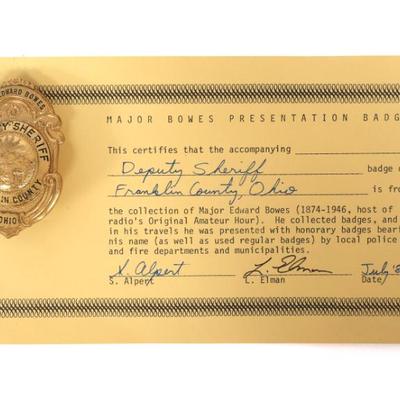 EDWARD BOWES
DEPUTY SHERIFF
IN COUNTY
OHIO
MAJOR BOWES PRESENTATION BADG
This certifies that the accompanying
Deputy Sheriff badge
Franklin County, Ohio is fro
the collection of Major Edward Bowes (1874-1946, host of
radio's Original Amateur Hour). He collected badges, and
in his travels he was presented with honorary badges beari
his name (as well as used regular badges) by local police
and fire departments and municipalities.
S. Alpert L. Elman July
S. Alpert L. Elman Date